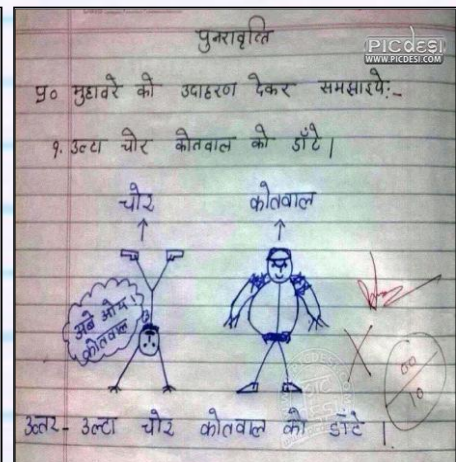 पुनरावृत्ति
PICDESI
WWW.PICDESI.COM
प्र० मुहावरे को उदाहरण देकर समझाइये:-
१. उल्टा चोर कोतवाल को डाँटे |
चोर कोतवाल
अबे ओय!
कोतवाल
00
10
उत्तर- उल्टा चोर कोतवाल को डाँटे |